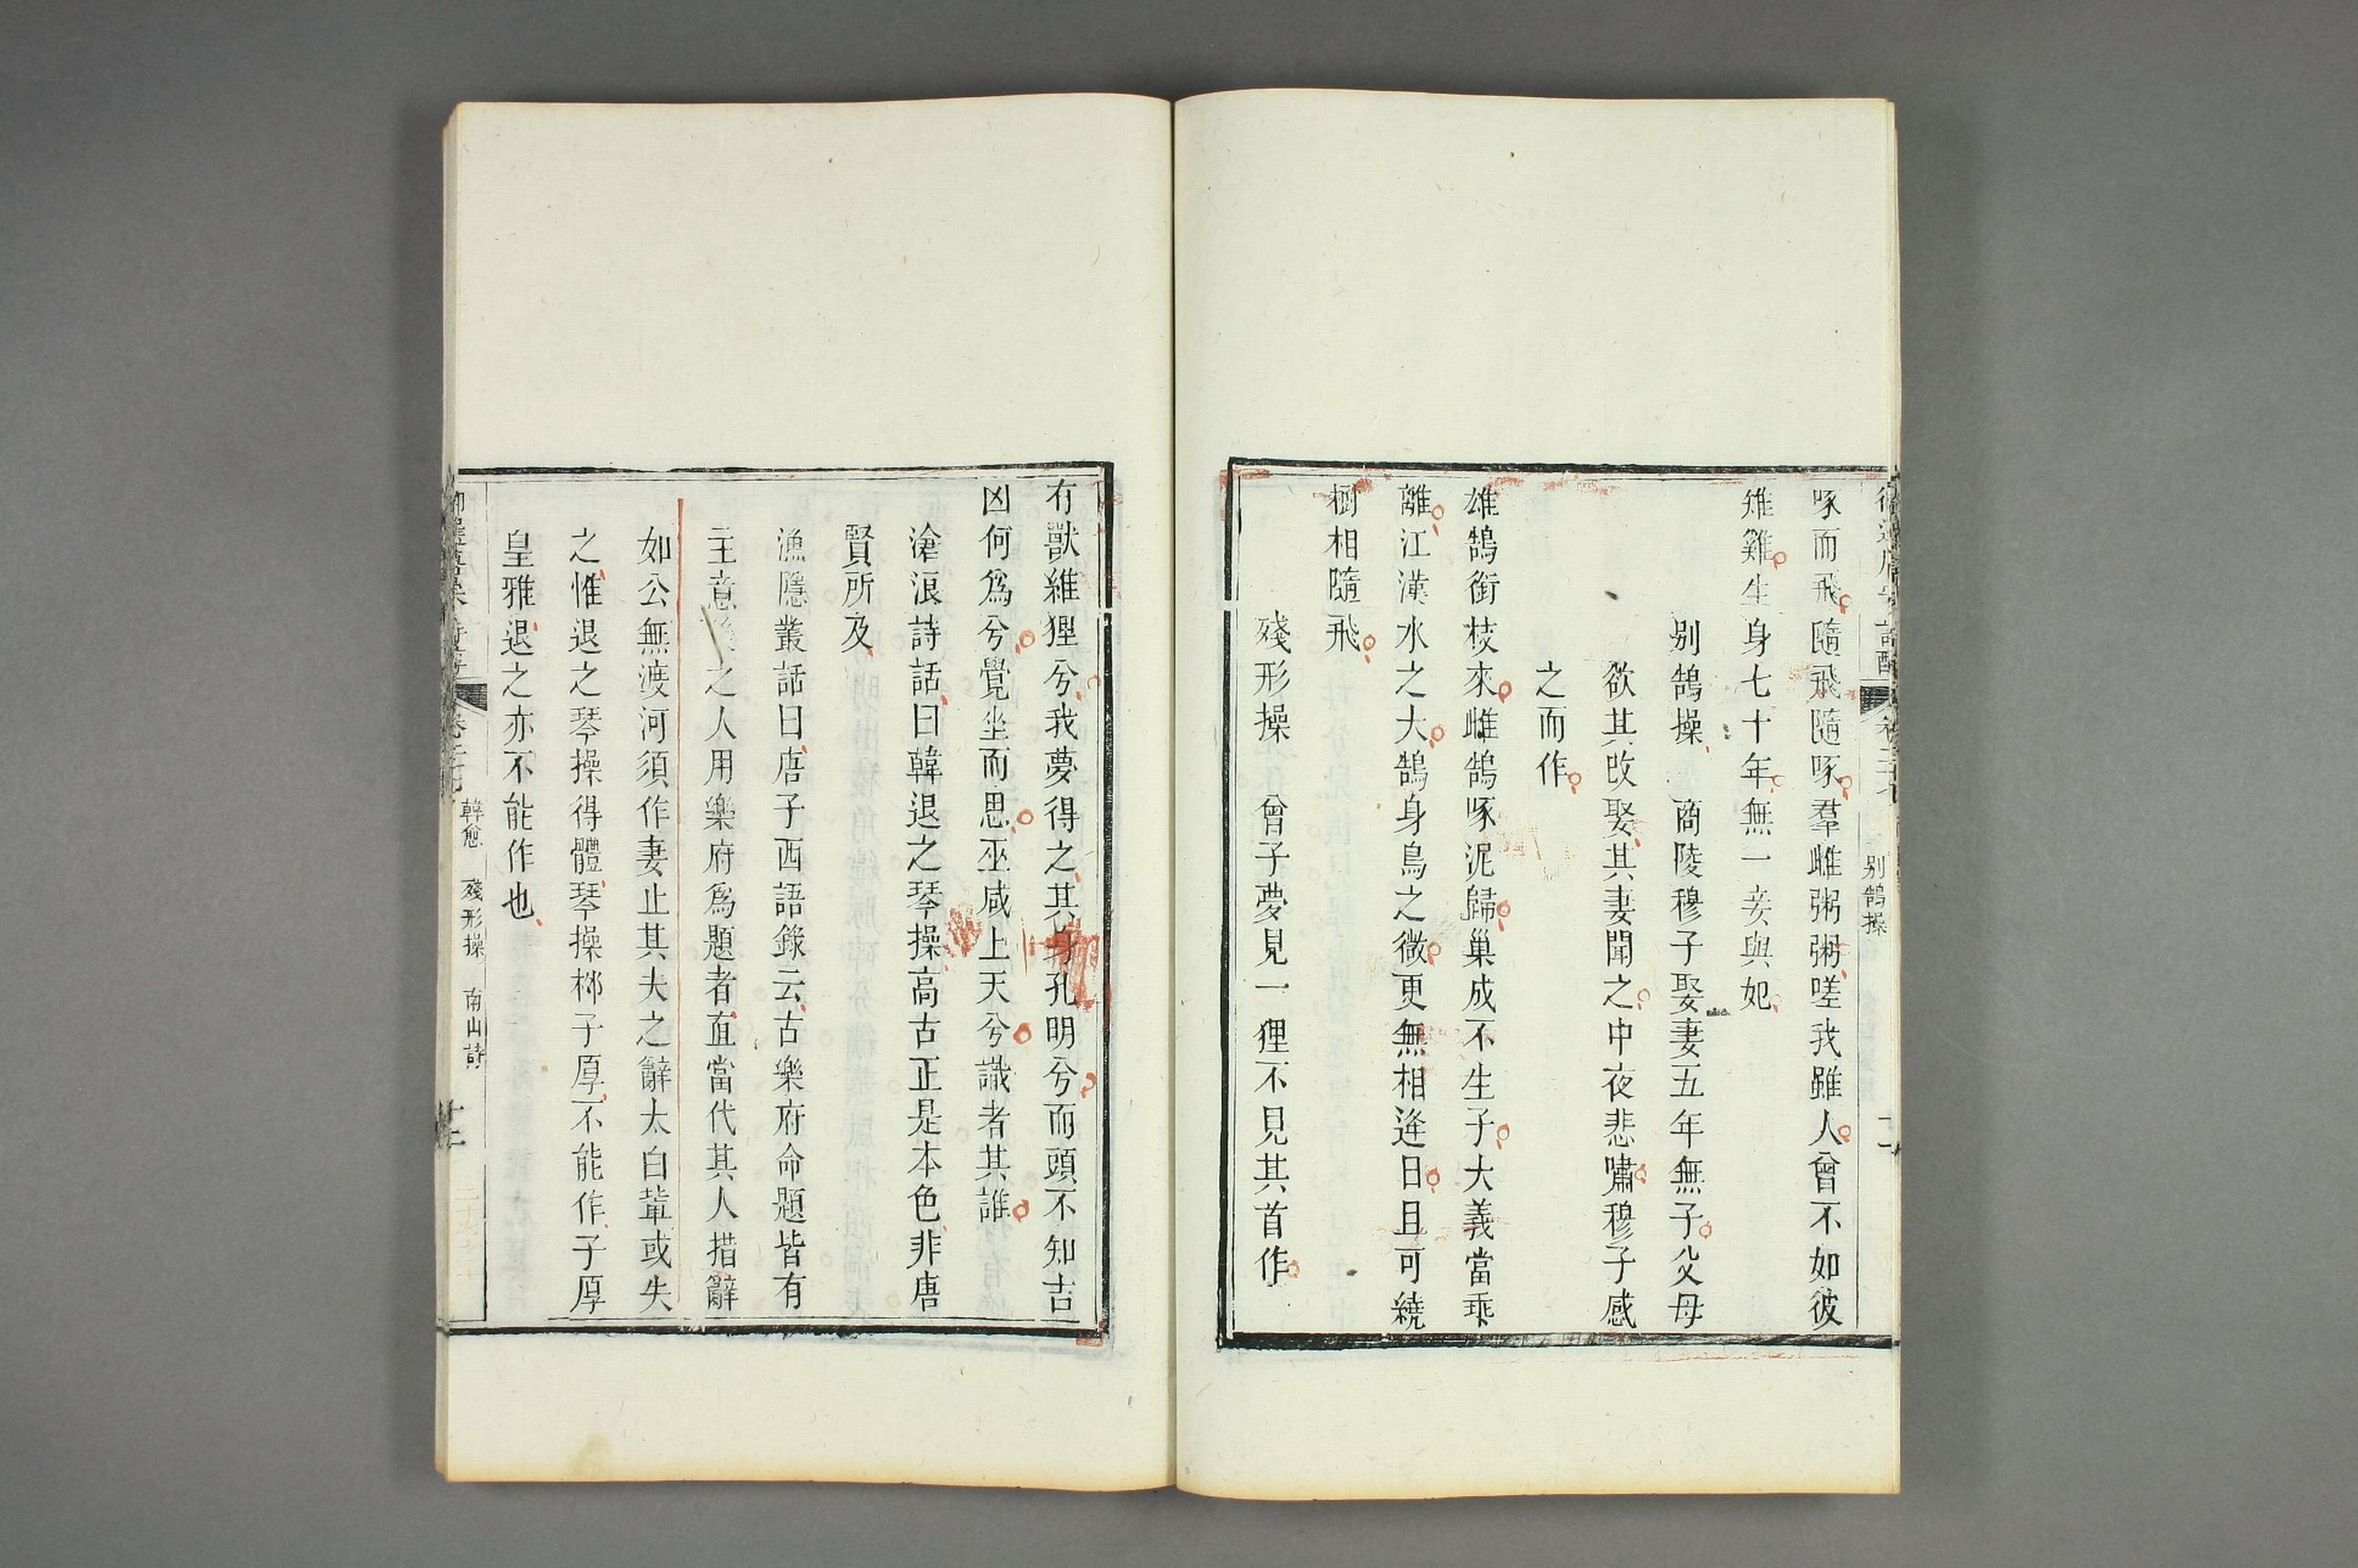 啄而飛隨飛隨啄羣雌粥粥嗟我雖人曾不如彼
雉雞生身七十年無一妾與妃
别鵠操 商陵穆子娶妻五年無子父母
欲其改娶其妻聞之中夜悲嘯穆子感
之而作
雄鵠銜枝來雌鵠啄泥歸巢成不生子大義當乖
離江漢水之大鵠身鳥之微更無相逢日且可繞
樹相隨飛
殘形操 曾子夢見一狸不見其首作
别鵠操
有獸維狸兮我夢得之其身孔明兮而頭不知吉
凶何爲兮覺坐而思巫咸上天兮識者其誰
滄浪詩話曰韓退之琴操高古正是本色非唐
賢所及
漁隱叢話曰唐子西語錄云古樂府命題皆有
主意之人用樂府爲題者直當代其人措辭
如公無渡河須作妻止其夫之辭太白輩或失
之惟退之琴操得體琴操栁子厚不能作子厚
皇雅退之亦不能作也
韓愈 殘形操 南山詩